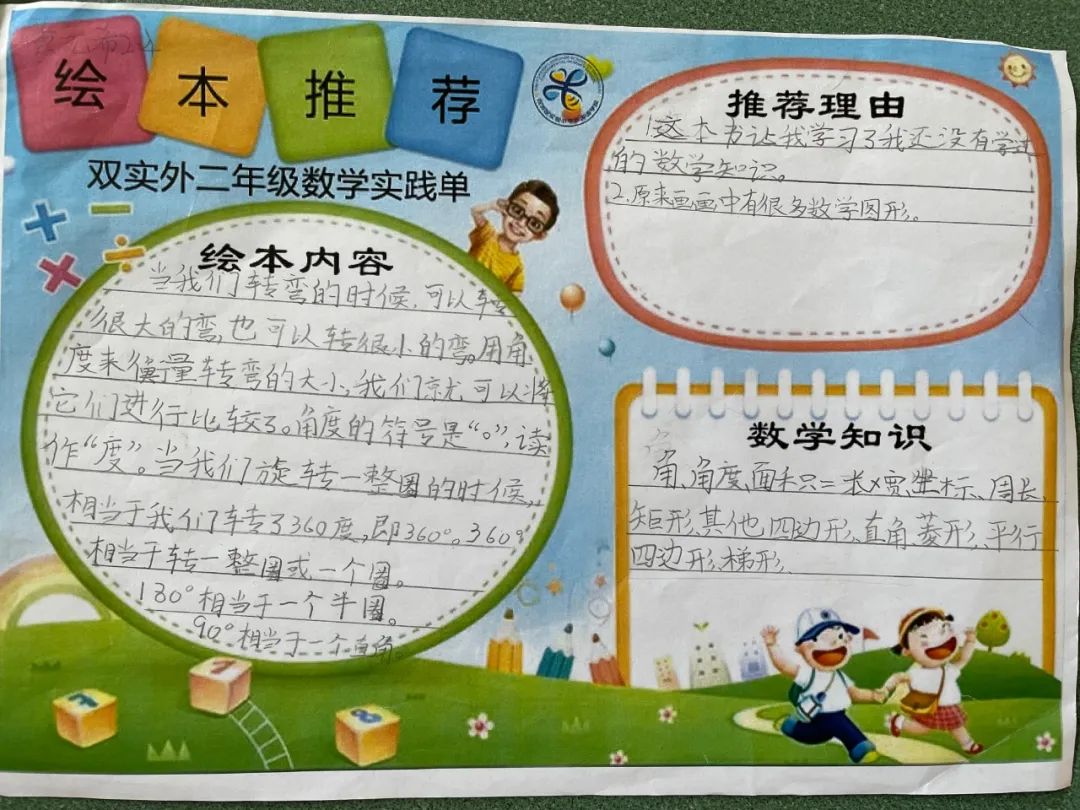 绘本推荐
双实外二年级数学实践单
绘本内容
当我们转弯的时候,可以转
很大的弯,也可以转很小的弯。用角
度来衡量转弯的大小,我们就可以将
它们进行比较了。角度的符号是“°”,读
作“度”。当我们旋转一整圈的时候,
相当于我们转了360度,即360°。360°
相当于转一整圈或一个圈。
180°相当于一个半圈。
90°相当于一个直角。
推荐理由
1.这本书让我学习了我还没有学过
的数学知识。
2.原来画画中有很多数学图形。
数学知识
角、角度、面积=长×宽、坐标、周长、
矩形、其他四边形、直角、菱形、平行
四边形、梯形、